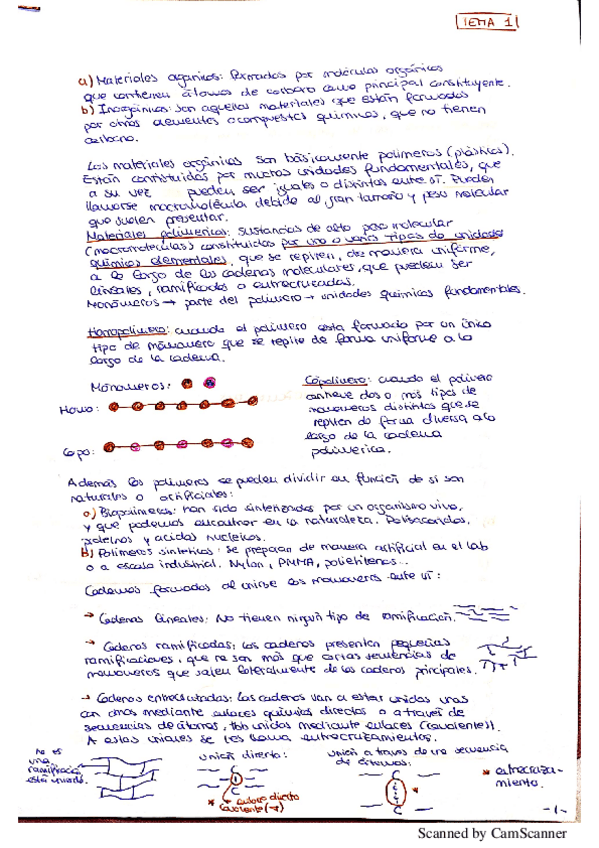 TEMA 1
a) Materiales organicos: Formados por moléculas orgánicas
que contienen átomos de carbono como principal constituyente.
b) Inorgánicos: son aquellos materiales que están formados
por otros elementos o compuestos químicos, que no tienen
carbono.
Los materiales orgánicos son básicamente polímeros (plásticos).
Están constituidos por muchas unidades fundamentales, que
a su vez pueden ser iguales o distintas entre sí. Pueden
llamarse macromolécula debido al gran tamaño y peso molecular
que suelen presentar.
Materiales poliméricos: sustancias de alto peso molecular
(macromoléculas) constituidos por uno o varios tipos de unidades
químicas elementales, que se repiten, de manera uniforme,
a lo largo de las cadenas moleculares, que pueden ser
lineales, ramificadas o entrecruzadas.
Monómeros → parte del polímero → unidades químicas fundamentales.
Homopolímero: cuando el polímero esta formado por un único
tipo de monómero que se repite de forma uniforme a lo
largo de la cadena.
Monómeros:
Homo:
Copo:
Copolímero: cuando el polímero
contiene dos o más tipos de
monómeros distintos que se
repiten de forma diversa a lo
largo de la cadena
polimérica.
Además los polímeros se pueden dividir en función de si son
naturales o artificiales:
a) Biopolímeros: han sido sintetizados por un organismo vivo,
y que podemos encontrar en la naturaleza. Polisacáridos,
proteínas y ácidos nucleicos.
b) Polímeros sintéticos: se preparan de manera artificial en el lab
o a escala industrial. Nylon, PMMA, polietileno...
Cadenas formadas al unirse los monómeros entre sí:
→ Cadenas lineales: No tienen ningún tipo de ramificación.
→ Cadenas ramificadas: las cadenas presentan pequeñas
ramificaciones, que no son más que cortas secuencias de
monómeros que salen lateralmente de las cadenas principales.
→ Cadenas entrecruzadas: Las cadenas van a estar unidas unas
con otras mediante enlaces químicos directos o a través de
secuencias de átomos, tbb unidos mediante enlaces (covalentes).
A estas uniones se les llama entrecruzamientos.
no es
una
ramificación
está unida.
unión directa:
C
C
enlace directo
covalente (→)
unión a través de una secuencia
de átomos:
C
C
* entrecruza-
miento.
-1-
Scanned by CamScanner